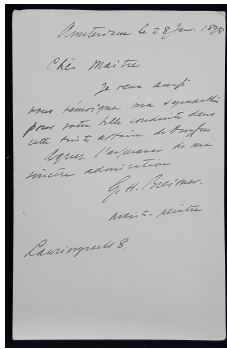 Amsterdam le 28 Janv. 1898
Chèr Maitre
Je veux aussi
vous témoigner ma sympathie
pour votre belle conduite dans
cette triste affaire de Dreyfus
Agréez l'assurance de ma
sincère admiration
G. H. Breitner.
artiste peintre
Lauriergracht 8.